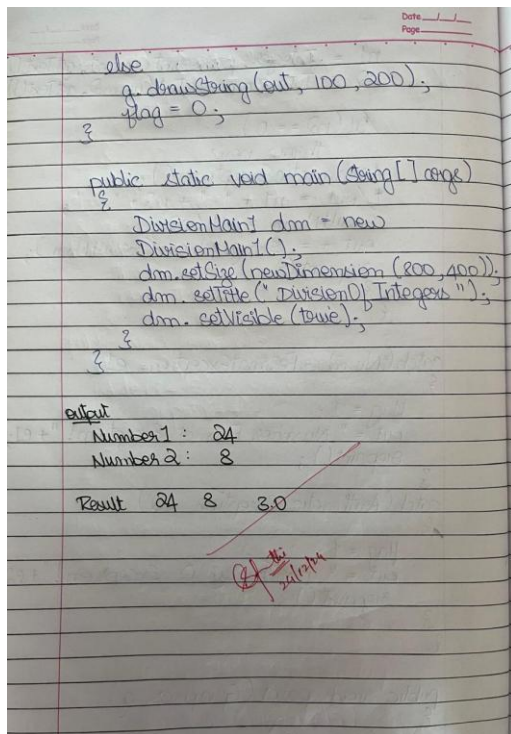 Date
Page
else
g. drawString(out, 100, 200);
flag = 0;
}
public static void main(String[] args)
{
DivisionMain1 dm = new
DivisionMain1();
dm.setSize(newDimension (800,400));
dm. setTitle (" DivisionOf Integers ");
dm. setVisible (true);
}
}
output
Number1 : 24
Number 2 : 8
Result 24 8 3.0
24/12/24